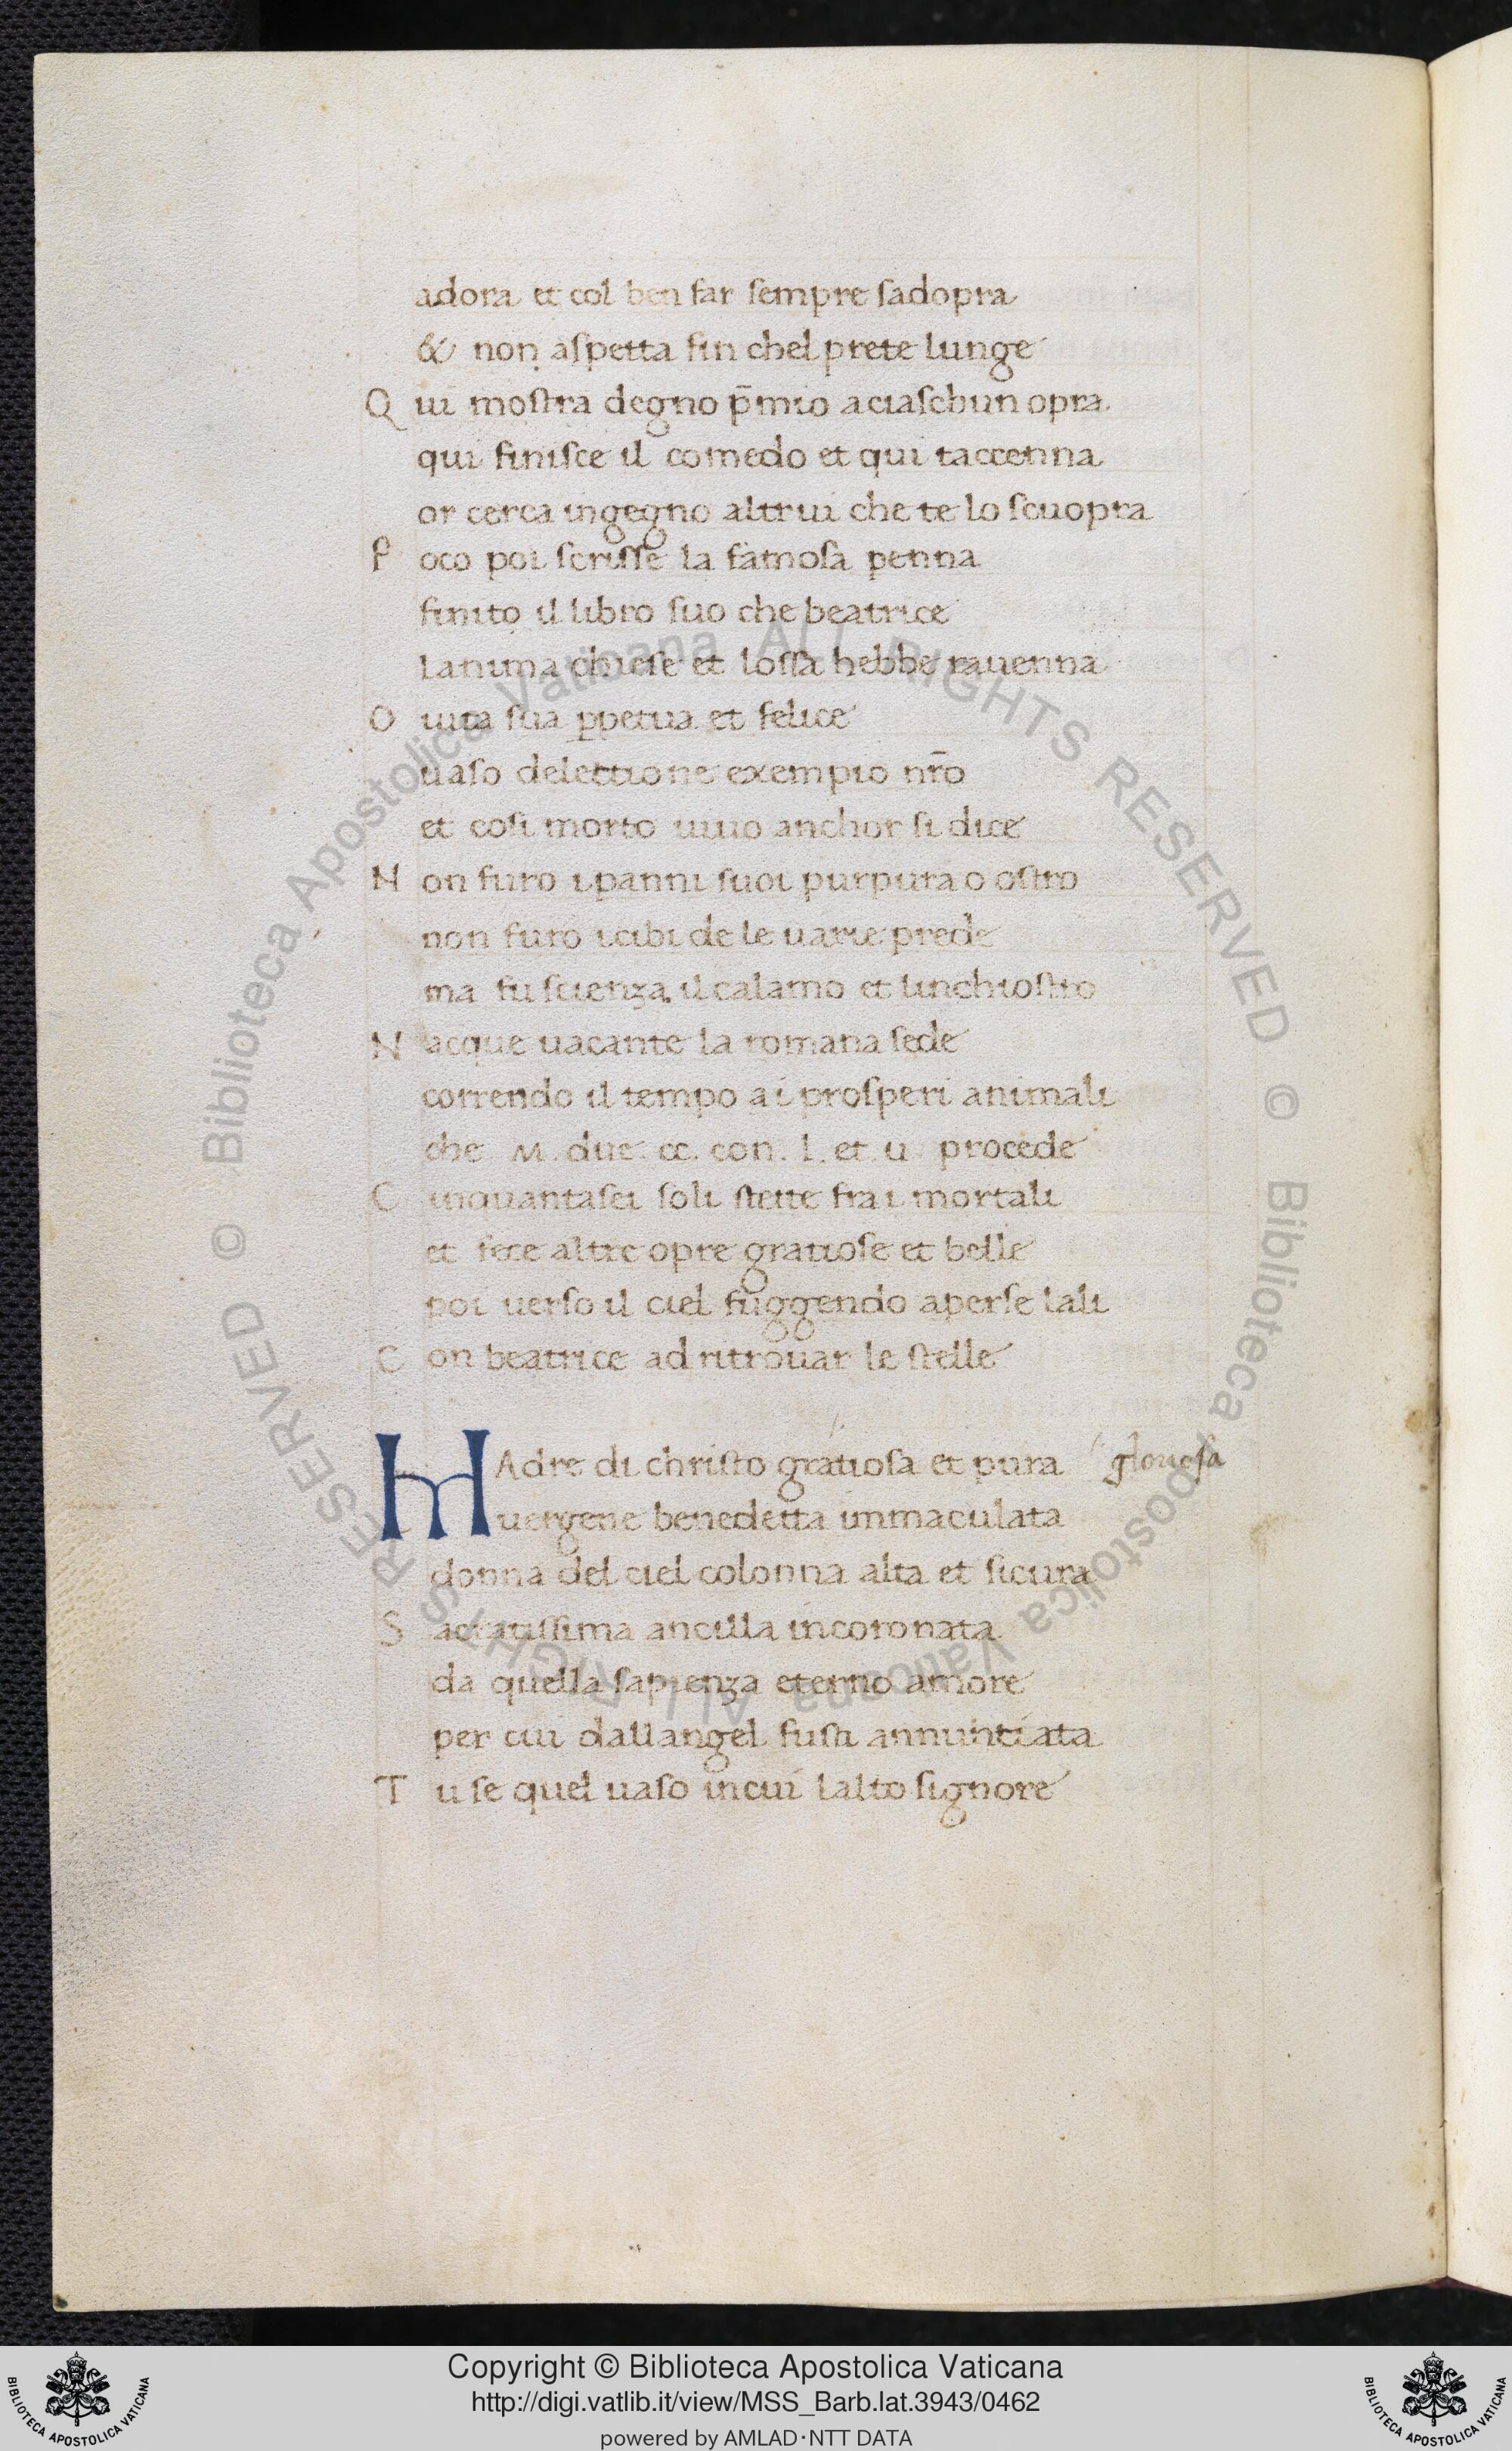 adora et col ben far sempre sadopra
& non aspetta fin chel prete lunge
Qui mostra degno p̄mio aciaschun opra
qui finisce il comedo et qui taccenna
or cerca ingegno altrui che te lo scuopra
Poco poi scrisse la famosa penna
finito il libro suo che beatrice
lanima chiese et lossa hebbe rauenna
O uita sua ꝑpetua et felice
uaso delectione exempio nr̄o
et cosi morto uiuo anchor si dice
Non furo i panni suoi purpura o ostro
non furo i cibi de le uarie prede
ma fu scienza il calamo et linchiostro
Nacque uacante la romana sede
correndo il tempo ai prosperi animali
che .M. due. cc. con. l. et. u. procede
Cinquantasei soli stette fra i mortali
et fece altre opre gratiose et belle
poi uerso il ciel fuggendo aperse lali
Con beatrice ad ritrouar le stelle
MAdre di christo gratiosa et pura gloriosa
uergene benedetta inmaculata
donna del ciel colonna alta et sicura
Sacratissima ancilla incoronata
da quella sapienza eterno amore
per cui dallangel fusti annuntiata
Tu se quel uaso in cui lalto signore
Copyright © Biblioteca Apostolica Vaticana
http://digi.vatlib.it/view/MSS_Barb.lat.3943/0462
powered by AMLAD·NTT DATA
BIBLIOTECA APOSTOLICA VATICANA
BIBLIOTECA APOSTOLICA VATICANA
© Biblioteca Apostolica Vaticana ALL RIGHTS RESERVED
© Biblioteca Apostolica Vaticana ALL RIGHTS RESERVED